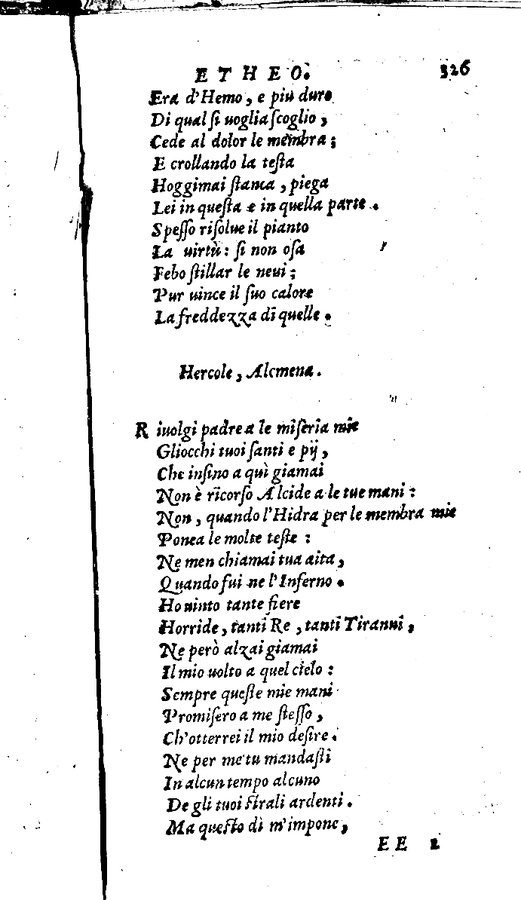 ETHEO. 326
Era d'Hemo, e piu duro
Di qual si uoglia scoglio,
Cede al dolor le membra;
E crollando la testa
Hoggimai stanca, piega
Lei in questa e in quella parte.
Spesso risolue il pianto
La uirtù: si non osa
Febo stillar le neui;
Pur uince il suo calore
La freddezza di quelle.
Hercole, Alcmena.
Riuolgi padre a le miserie mie
Gliocchi tuoi santi e pij,
Che insino a qui giamai
Non è ricorso Alcide a le tue mani:
Non, quando l'Hidra per le membra mie
Ponea le molte teste:
Ne men chiamai tua aita,
Quando fui ne l'Inferno.
Ho uinto tante fiere
Horride, tanti Re, tanti Tiranni,
Ne però alzai giamai
Il mio uolto a quel cielo:
Sempre queste mie mani
Promisero a me stesso,
Ch'otterrei il mio desire.
Ne per me tu mandasti
In alcun tempo alcuno
De gli tuoi strali ardenti.
Ma questo dì m'impone,
EE 2